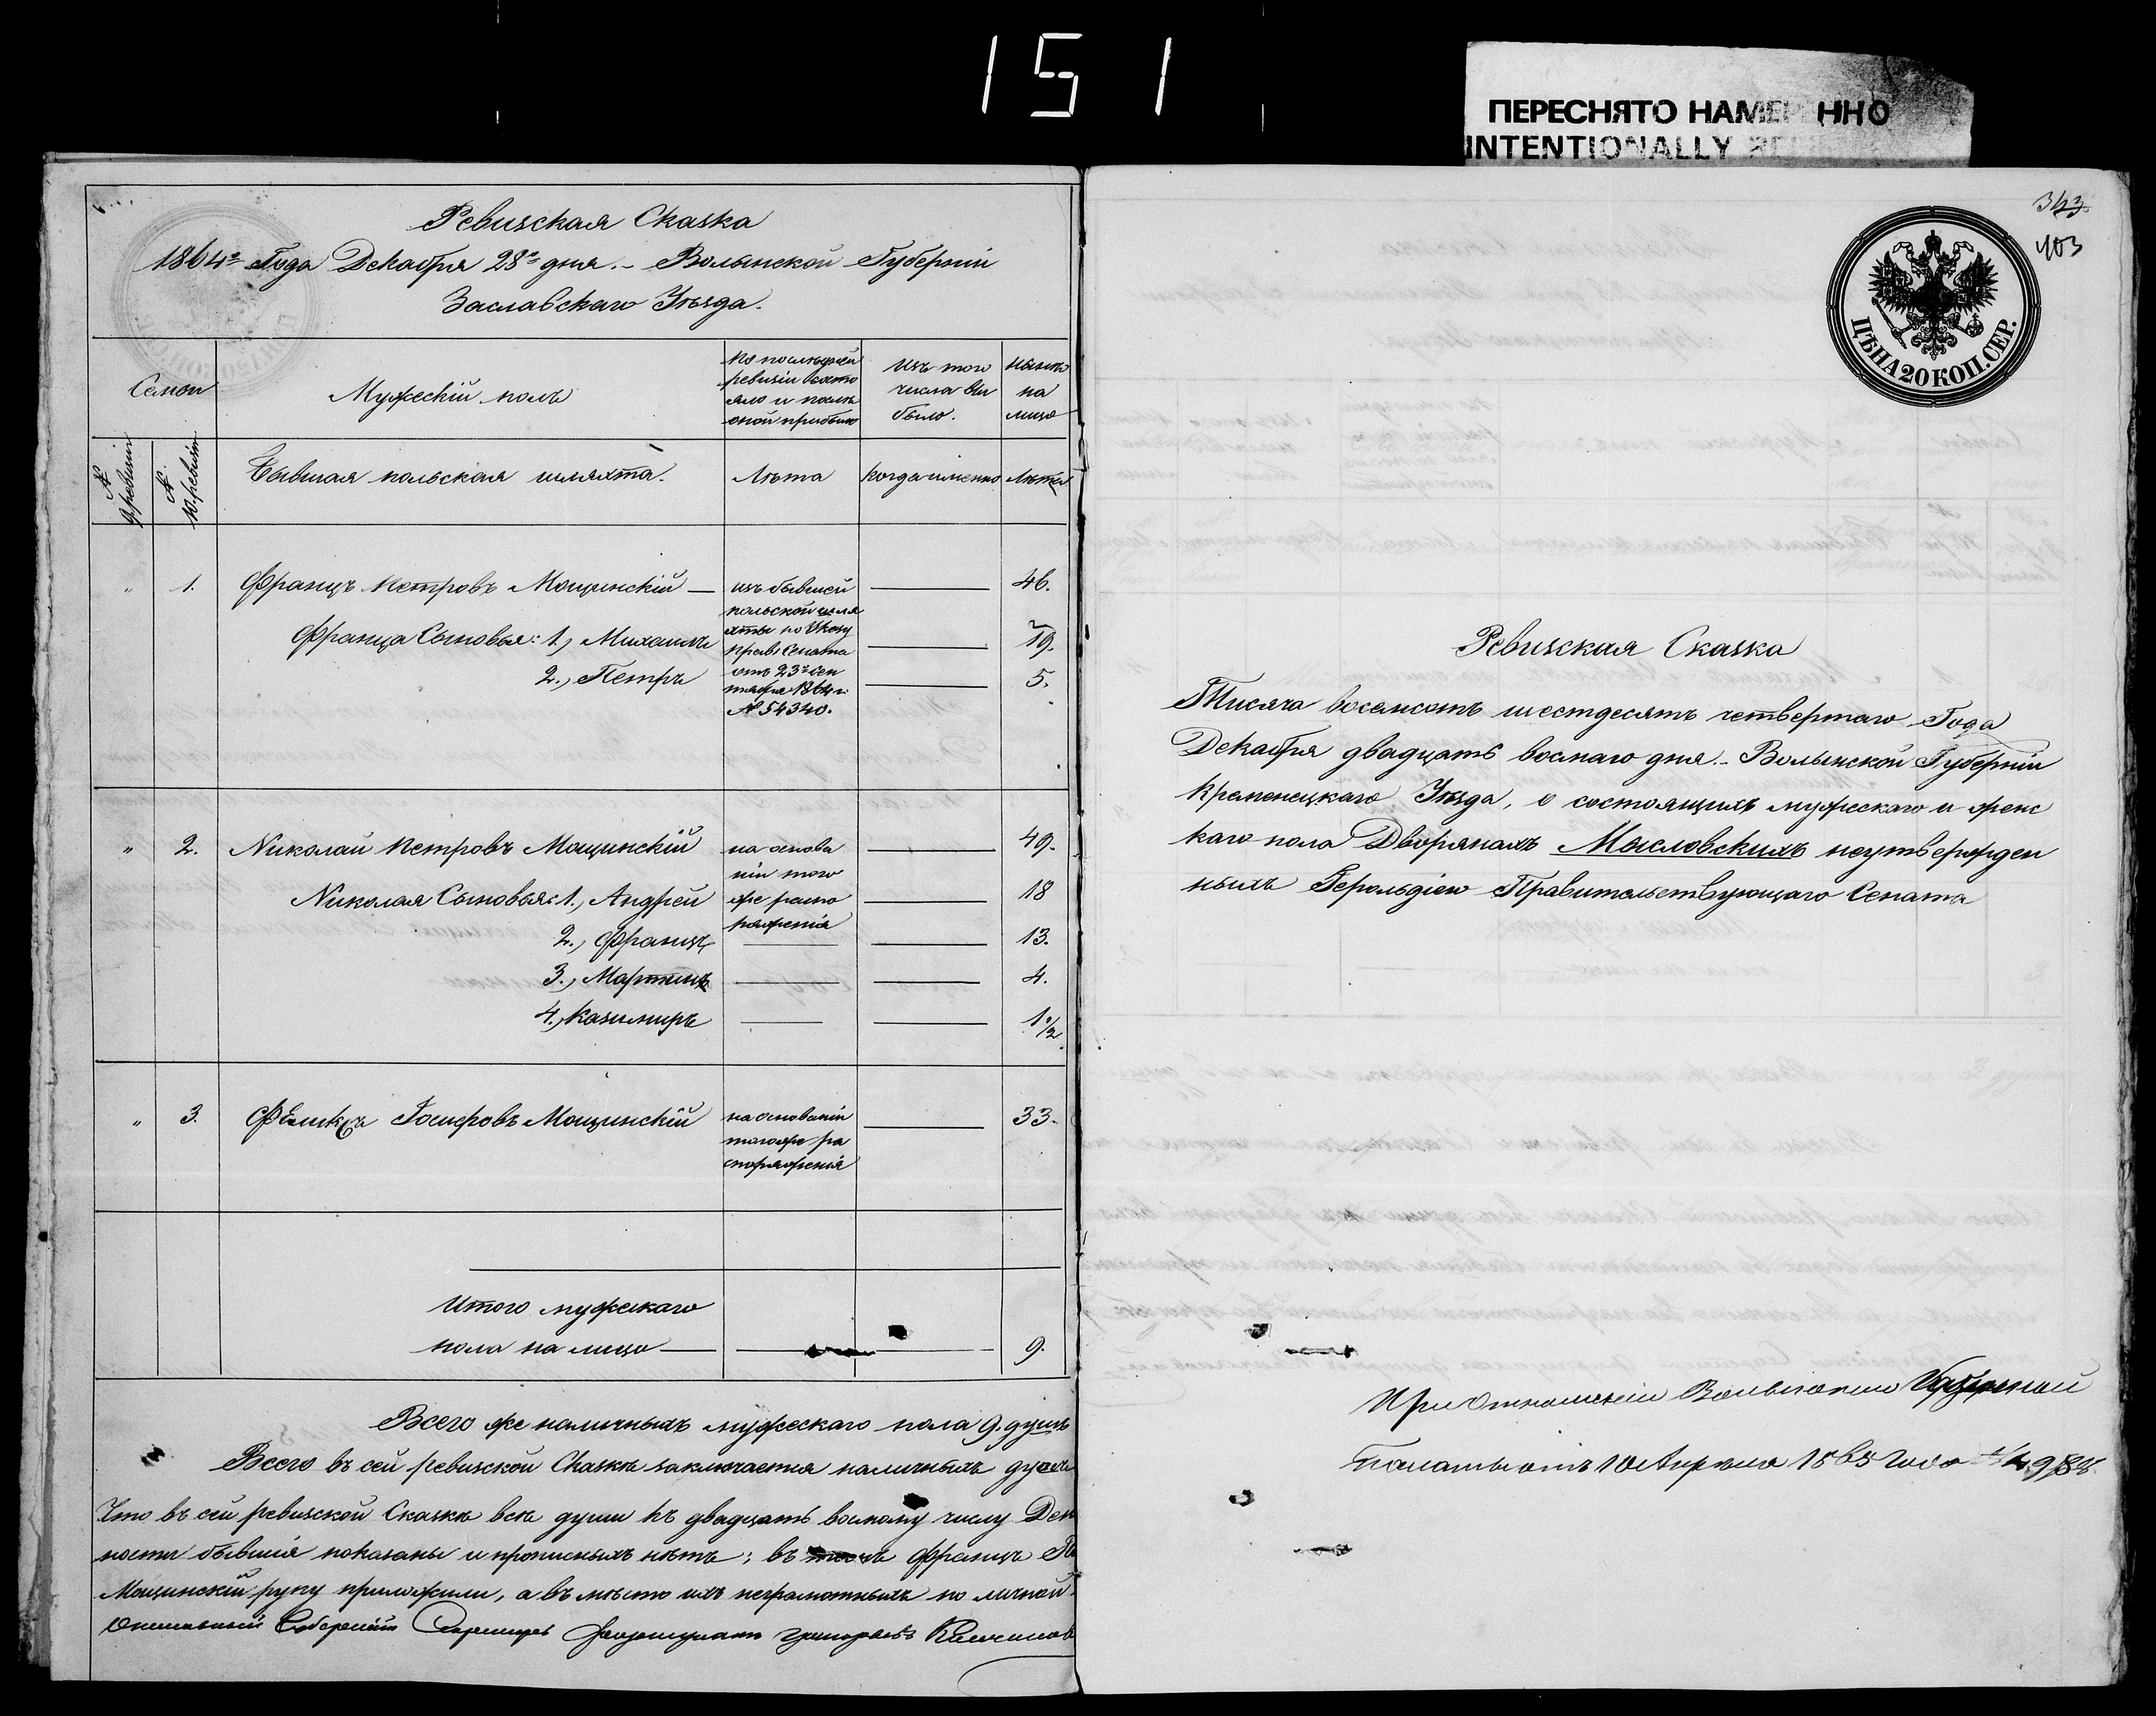 151
ПЕРЕСНЯТО НАМЕРЕННО
INTENTIONALLY
Ревизская Сказка
1864го Года Декабря 28го дня. – Волынской Губерніи
Заславскаго Уѣзда.
Семьи
Мужескій полъ
По послѣдней ревизіи состояло и послѣ оной прибыло
Изъ того числа выбыло.
Нынѣ на лицо
№ 9.ревизіи
№ 10.ревизіи
Бывшая польская шляхта.
Лѣта
Когда именно
Лѣта
" 1. Францъ Петровъ Мощинскій — 46.
изъ бывшей
польской шля
хты по Указу
Прав: Сената
отъ 23го Сен
тября 1864 г:
№ 54340.
Франца Сыновья: 1., Михаилъ 19.
2., Петръ 5.
" 2. Николай Петровъ Мощинскій 49.
на основа
ніи того
же распо
ряженія
Николая Сыновья: 1., Андрей 18
2., Францъ 13.
3., Мартинъ 4.
4., Казимиръ 1 1/2
" 3. Феликсъ Іосифовъ Мощинскій 33.
на основаніи
того же ра
споряженія
Итого мужескаго
пола на лицо — 9.
Всего же наличныхъ мужескаго пола 9. душъ
Всего въ сей ревизской Сказкѣ заключается наличныхъ душъ
Что въ сей ревизской Сказкѣ всѣ души къ двадцать восьмому числу Дек
ности бывшія показаны и прописныхъ нѣтъ; въ Францъ Пе
Мощинскій руку приложили, а въ мѣсто ихъ неграмотныхъ по личной
343
403
ЦѢНА 20 КОП. СЕР.
Ревизская Сказка
Тисяча восемсотъ шестдесятъ четвертаго Года
Декабря двадцать восмаго дня. – Волынской Губерніи
Кременецкаго Уѣзда, о состоящихъ мужескаго и женс
каго пола Дворянахъ Мысловскихъ неутвержден
ныхъ Герольдіею Правительствующаго Сената
При отношеніи Волынской Казенной
Палаты отъ 10 Апрѣля 1865 Года